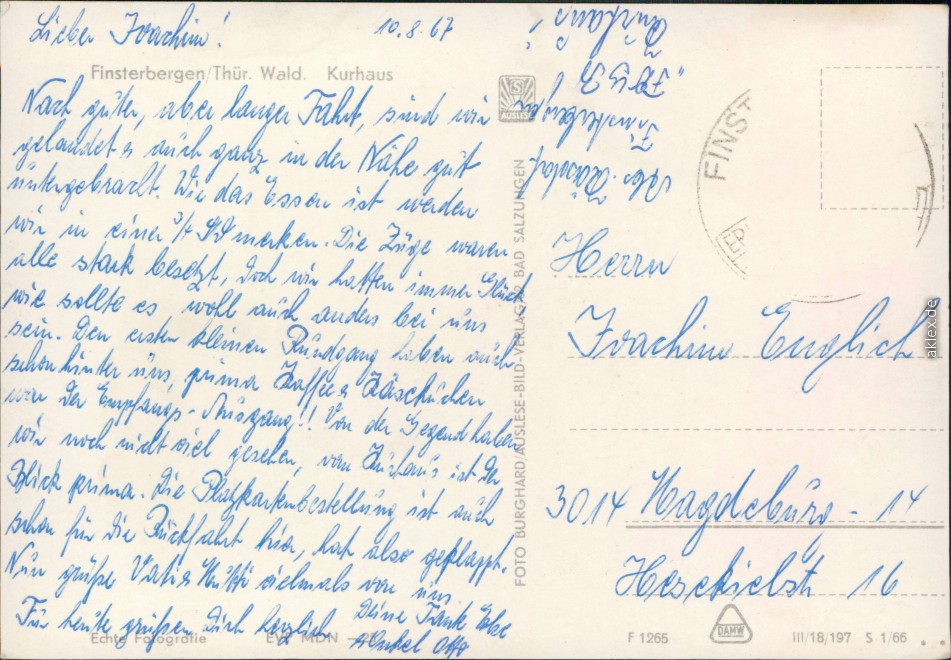 Lieber Joachim!
10.8.67
Finsterbergen/Thür. Wald. Kurhaus
Nach guter, aber langer Fahrt, sind wir
gelandet & auch ganz in der Nähe gut
untergebracht. Wie das Essen ist werden
wir in einer 3/4 Std merken. Die Züge waren
alle stark besetzt, doch wir hatten immer Glück
wie sollte es wohl auch anders bei uns
sein. Den ersten kleinen Rundgang haben auch
schon hinter uns, prima Kaffee & Käsekuchen
war der Empfangs-Ausgang!! Von der Gegend haben
wir noch nicht viel gesehen, vom Kurhaus ist der
Blick prima. Die Platzkartenbestellung ist auch
schon für die Rückfahrt hier, hat also geklappt.
Nun grüße Vati & Mutti vielmals von uns.
Für heute grüßen Dich herzlich Deine Tante
Onkel Otto
Echte Fotografie EVP MDN
AUSLESE
FOTO BURGHARD/AUSLESE-BILD-VERLAG BAD SALZUNGEN
Finsterbergen
Kurhaus
FINST
Herrn
Joachim Englich
3014 Magdeburg - 14
Hesekielstr 16
F 1265
DAMW
III/18/197 S 1/66
aklex.de